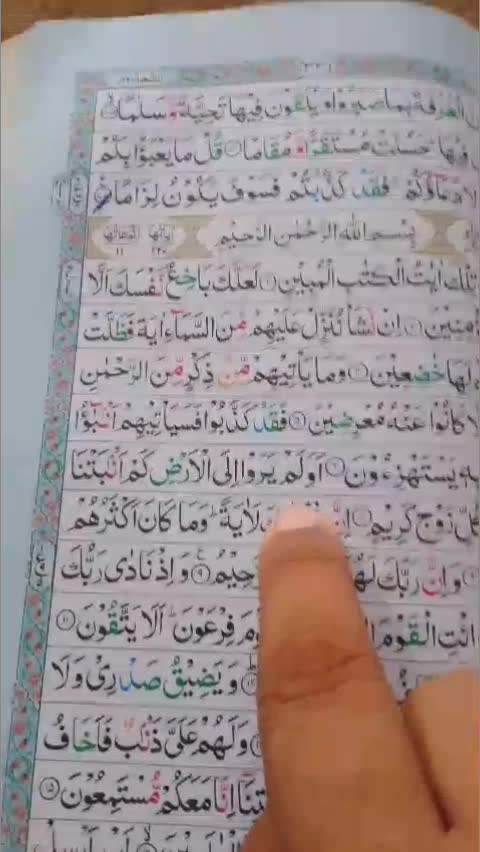 الغرفة بما صبروا ويلقون فيها تحية وسلما
فيها حسنت مستقرا ومقاما ۝ قل ما يعبؤا بكم
دعاؤكم فقد كذبتم فسوف يكون لزاما ۝
بسم الله الرحمن الرحيم
تلك ايت الكتب المبين ۝ لعلك باخع نفسك الا
مؤمنين ۝ ان نشا ننزل عليهم من السماء اية فظلت
لها خضعين ۝ وما ياتيهم من ذكر من الرحمن
كانوا عنه معرضين ۝ فقد كذبوا فسياتيهم انبؤا
به يستهزءون ۝ اولم يروا الى الارض كم انبتنا
كل زوج كريم ۝ ان لاية وما كان اكثرهم
وان ربك ۝ واذ نادى ربك
ائت القوم فرعون الا يتقون ۝
ويضيق صدري ولا
ولهم على ذنب فاخاف
انا معكم مستمعون ۝